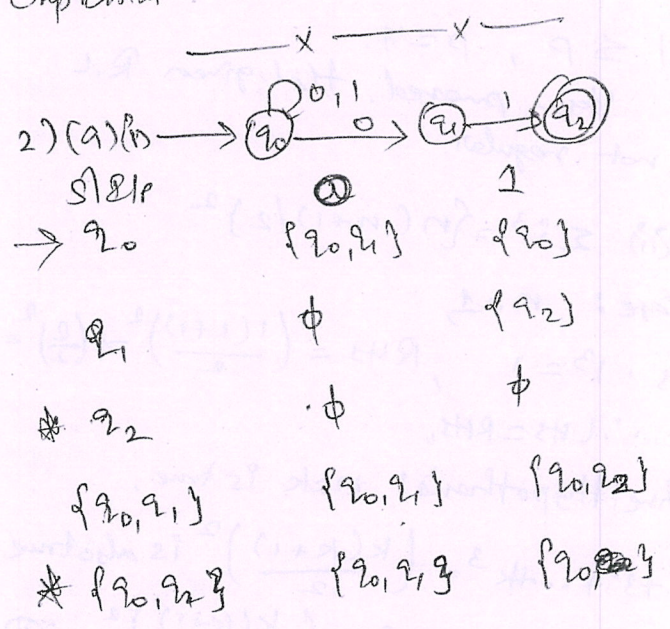 x x
2) (a) (i) → q0 0,1 0 q1 1 q2
0 1
→ q0 {q0,q1} {q0}
q1 ϕ {q2}
* q2 ϕ ϕ
{q0,q1} {q0,q1} {q0,q2}
* {q0,q2} {q0,q1} {q0}